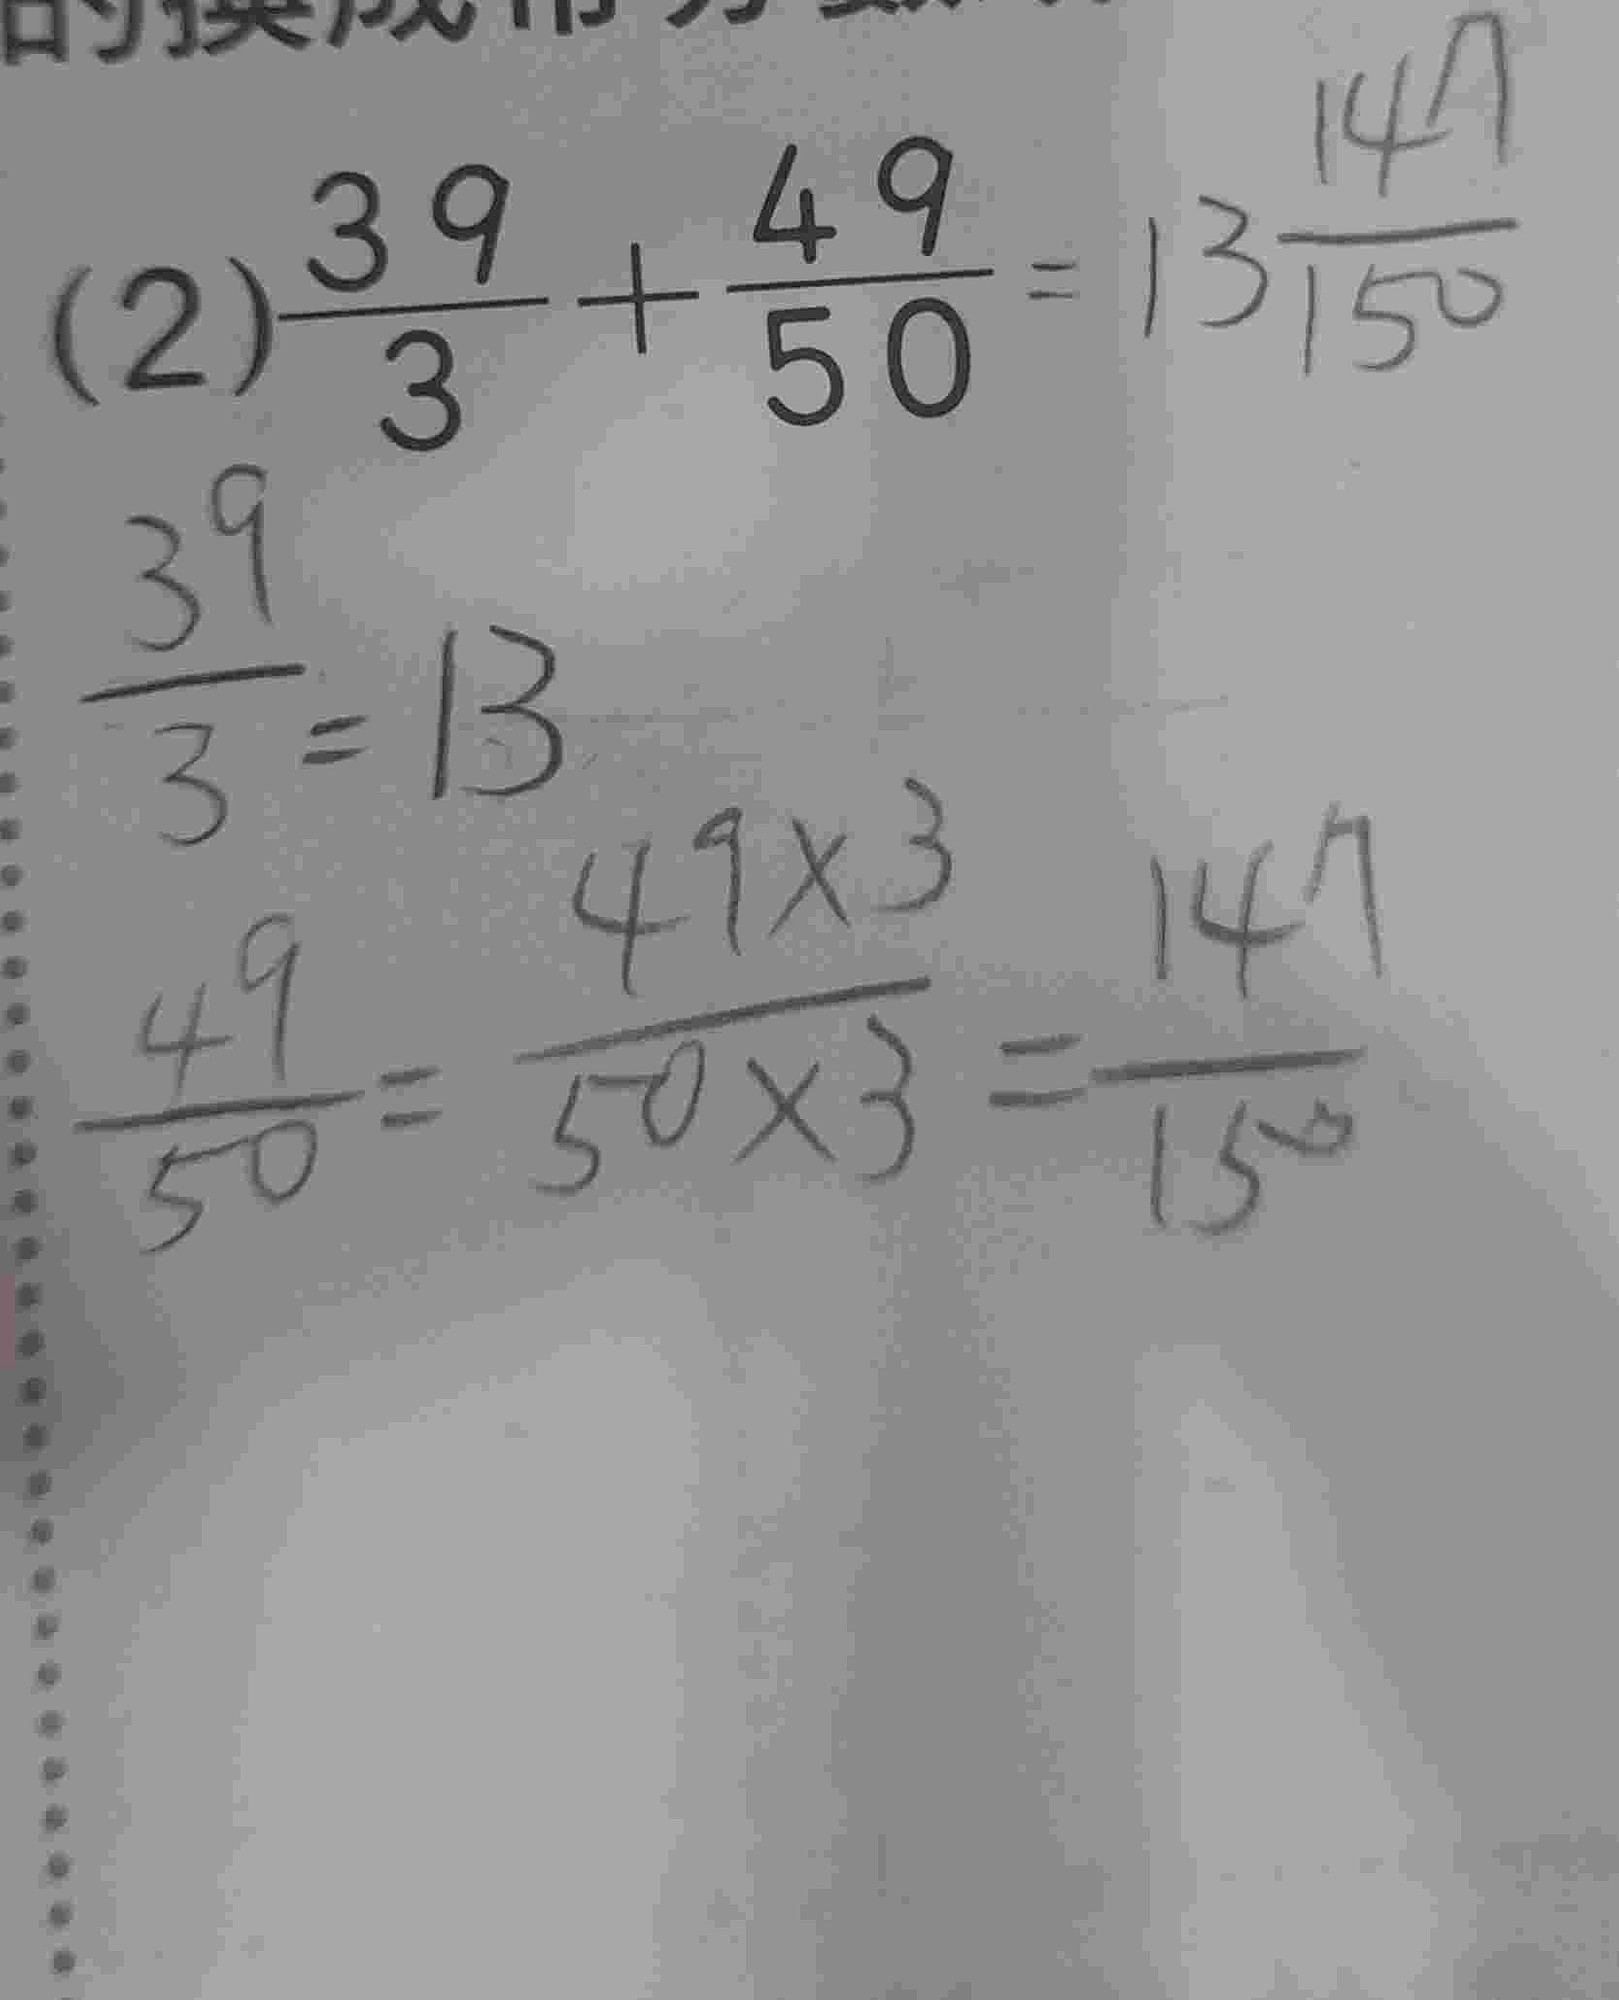 的換成帶分數
(2) 39/3 + 49/50 = 13 147/150
39/3 = 13
49/50 = 49×3/50×3 = 147/150